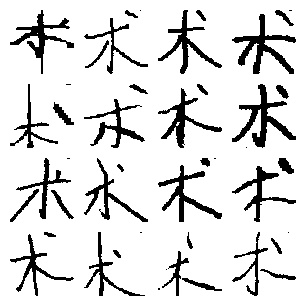 术术术术
术术术术
术术术术
术术术术